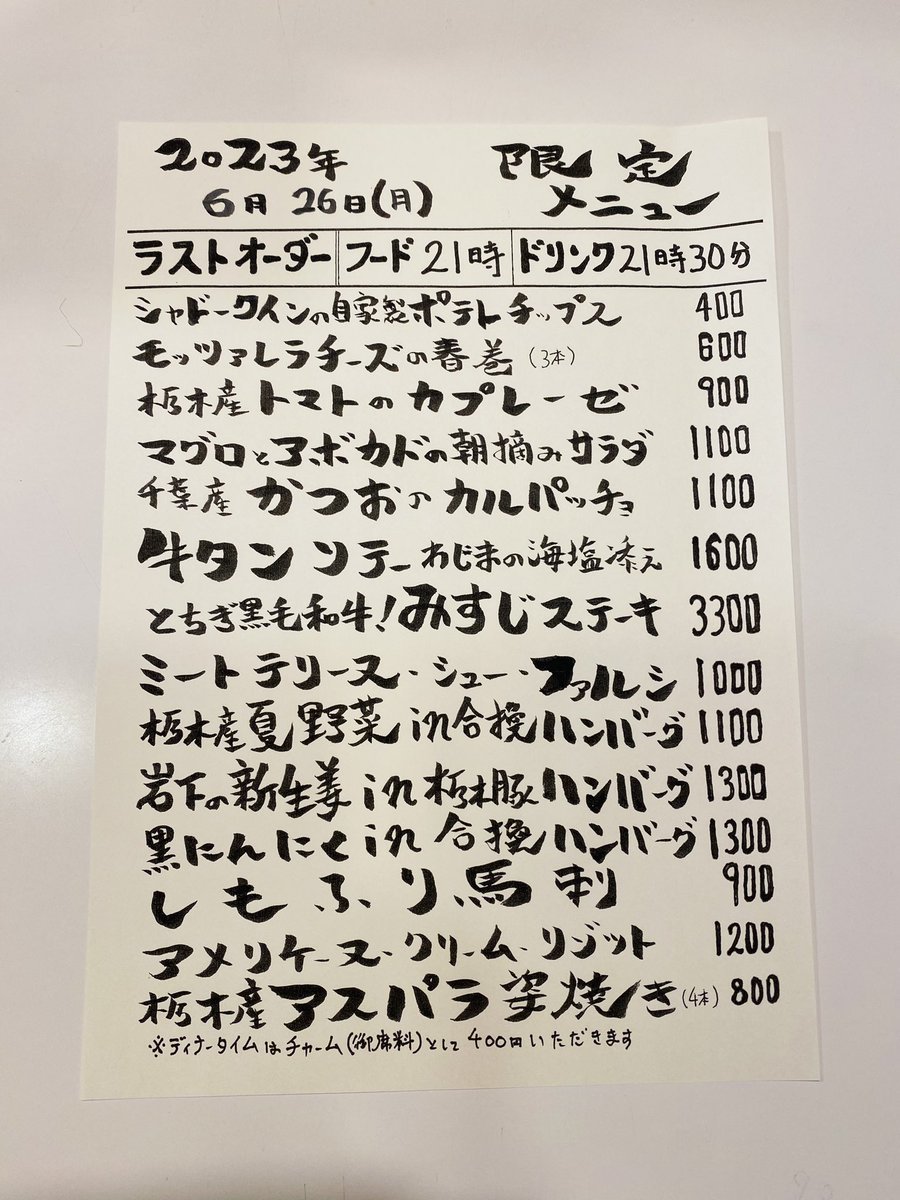 2023年 限定
6月 26日(月) メニュー
ラストオーダー フード 21時 ドリンク21時30分
シャドークインの自家製ポテトチップス 400
モッツァレラチーズの春巻(3本) 600
栃木産トマトのカプレーゼ 900
マグロとアボカドの朝摘みサラダ 1100
千葉産かつおのカルパッチョ 1100
牛タンソテーわじまの海塩添え 1600
とちぎ黒毛和牛!みすじステーキ 3300
ミートテリーヌ・シュー・ファルシ 1000
栃木産夏野菜in合挽ハンバーグ 1100
岩下の新生姜in栃木豚ハンバーグ 1300
黒にんにくin合挽ハンバーグ 1300
しもふり馬刺 900
アメリケーヌ・クリーム・リゾット 1200
栃木産アスパラ姿焼き(4本) 800
※ディナータイムはチャーム(御席料)として400円いただきます